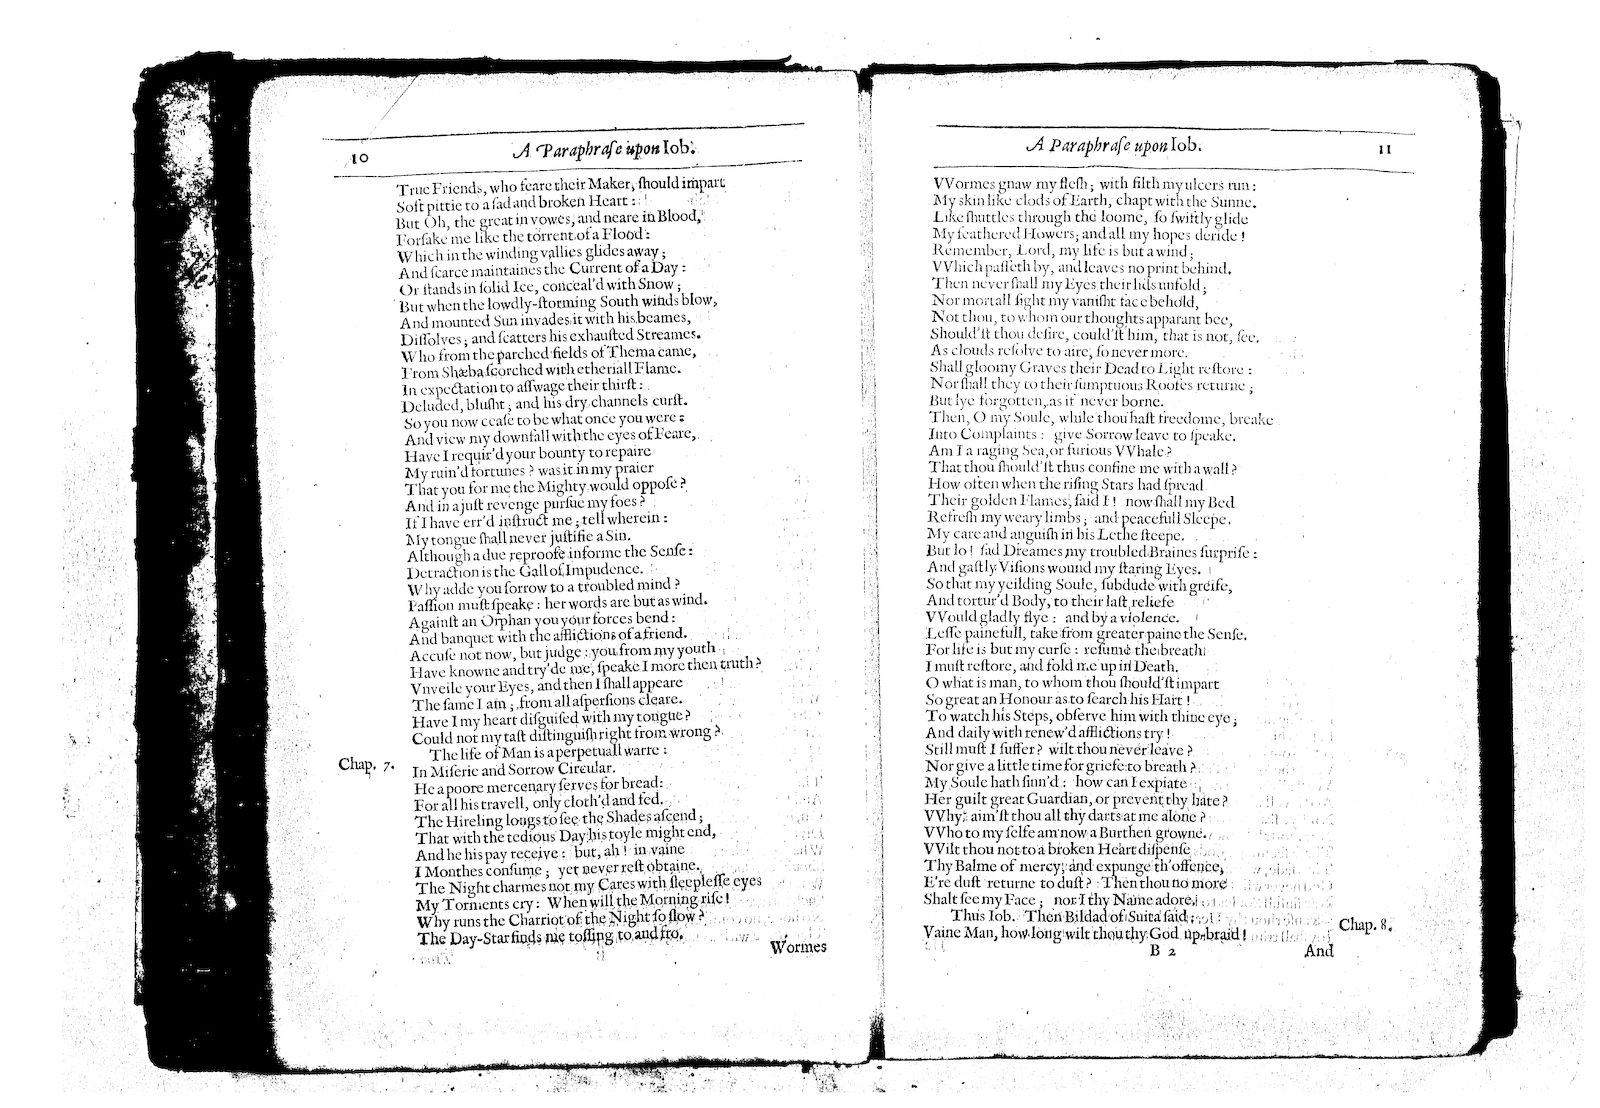 10
A Paraphraſe upon Iob.
True Friends, who feare their Maker, ſhould impart
Soft pittie to a ſad and broken Heart:
But Oh, the great in vowes, and neare in Blood,
Forſake me like the torrent of a Flood:
Which in the winding vallies glides away;
And ſcarce maintaines the Current of a Day:
Or ſtands in ſolid Ice, conceal'd with Snow;
But when the lowdly-ſtorming South winds blow,
And mounted Sun invades it with his beames,
Diſſolves; and ſcatters his exhauſted Streames.
Who from the parched fields of Thema came,
From Shæba ſcorched with etheriall Flame.
In expectation to aſſwage their thirſt:
Deluded, bluſht; and his dry channels curſt.
So you now ceaſe to be what once you were:
And view my downfall with the eyes of Feare,
Have I requir'd your bounty to repaire
My ruin'd fortunes? was it in my praier
That you for me the Mighty would oppoſe?
And in a juſt revenge purſue my foes?
If I have err'd inſtruct me; tell wherein:
My tongue ſhall never juſtifie a Sin.
Although a due reproofe informe the Senſe:
Detraction is the Gall of Impudence.
Why adde you ſorrow to a troubled mind?
Paſſion muſt ſpeake: her words are but as wind.
Againſt an Orphan you your forces bend:
And banquet with the afflictions of a friend.
Accuſe not now, but judge: you from my youth
Have knowne and try'de me, ſpeake I more then truth?
Vnveile your Eyes, and then I ſhall appeare
The ſame I am; from all aſperſions cleare.
Have I my heart diſguiſed with my tongue?
Could not my taſt diſtinguiſh right from wrong?
The life of Man is a perpetuall warre:
Chap. 7.
In Miſerie and Sorrow Circular.
He a poore mercenary ſerves for bread:
For all his travell, only cloth'd and fed.
The Hireling longs to ſee the Shades aſcend;
That with the tedious Day his toyle might end,
And he his pay receive: but, ah! in vaine
I Monthes conſume; yet never reſt obtaine.
The Night charmes not my Cares with ſleepleſſe eyes
My Torments cry: When will the Morning riſe!
Why runs the Charriot of the Night ſo ſlow?
The Day-Star finds me toſſing to and fro.
Wormes
A Paraphraſe upon Iob.
11
VVormes gnaw my fleſh; with filth my ulcers run:
My skin like clods of Earth, chapt with the Sunne.
Like ſhuttles through the loome, ſo ſwiftly glide
My feathered Howers; and all my hopes deride!
Remember, Lord, my life is but a wind;
VVhich paſſeth by, and leaves no print behind.
Then never ſhall my Eyes their lids unfold;
Nor mortall ſight my vaniſht face behold,
Not thou, to whom our thoughts apparant bee,
Should'ſt thou deſire, could'ſt him, that is not, ſee.
As clouds reſolve to aire, ſo never more.
Shall gloomy Graves their Dead to Light reſtore:
Nor ſhall they to their ſumptuous Roofes returne;
But lye forgotten, as if never borne.
Then, O my Soule, while thou haſt freedome, breake
Into Complaints: give Sorrow leave to ſpeake.
Am I a raging Sea, or furious VVhale?
That thou ſhould'ſt thus confine me with a wall?
How often when the riſing Stars had ſpread
Their golden Flames, ſaid I! now ſhall my Bed
Refreſh my weary limbs; and peacefull Sleepe.
My care and anguiſh in his Lethe ſteepe.
But lo! ſad Dreames my troubled Braines ſurpriſe:
And gaſtly Viſions wound my ſtaring Eyes.
So that my yeilding Soule, ſubdude with greife,
And tortur'd Body, to their laſt reliefe
VVould gladly flye: and by a violence.
Leſſe painefull, take from greater paine the Senſe.
For life is but my curſe: reſume the breath
I muſt reſtore, and fold me up in Death.
O what is man, to whom thou ſhould'ſt impart
So great an Honour as to ſearch his Hart!
To watch his Steps, obſerve him with thine eye;
And daily with renew'd afflictions try!
Still muſt I ſuffer? wilt thou never leave?
Nor give a little time for griefe to breath?
My Soule hath ſinn'd: how can I expiate
Her guilt great Guardian, or prevent thy hate?
VVhy aim'ſt thou all thy darts at me alone?
VVho to my ſelfe am now a Burthen growne.
VVilt thou not to a broken Heart diſpenſe
Thy Balme of mercy; and expunge th'offence,
E're duſt returne to duſt? Then thou no more
Shalt ſee my Face; nor I thy Name adore.
Thus Iob. Then Bildad of Suita ſaid;
Chap. 8.
Vaine Man, how long wilt thou thy God upbraid!
B 2
And